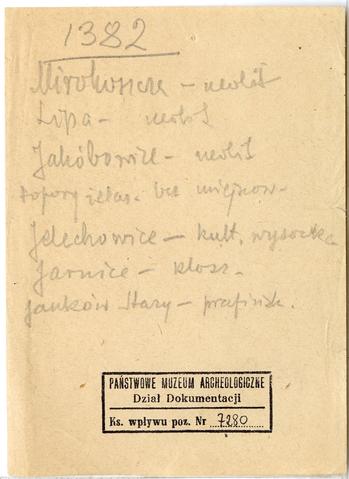 1382
Mirohoszcze – neolit
Lipa – neolit
Jakóbowice – neolit
topory żelaz. bez miejscow.
Jelechowice – kult. wysocka
Jarnice – klosz.
Janków Stary – prafińsk.
PAŃSTWOWE MUZEUM ARCHEOLOGICZNE
Dział Dokumentacji
Ks. wpływu poz. Nr 7280